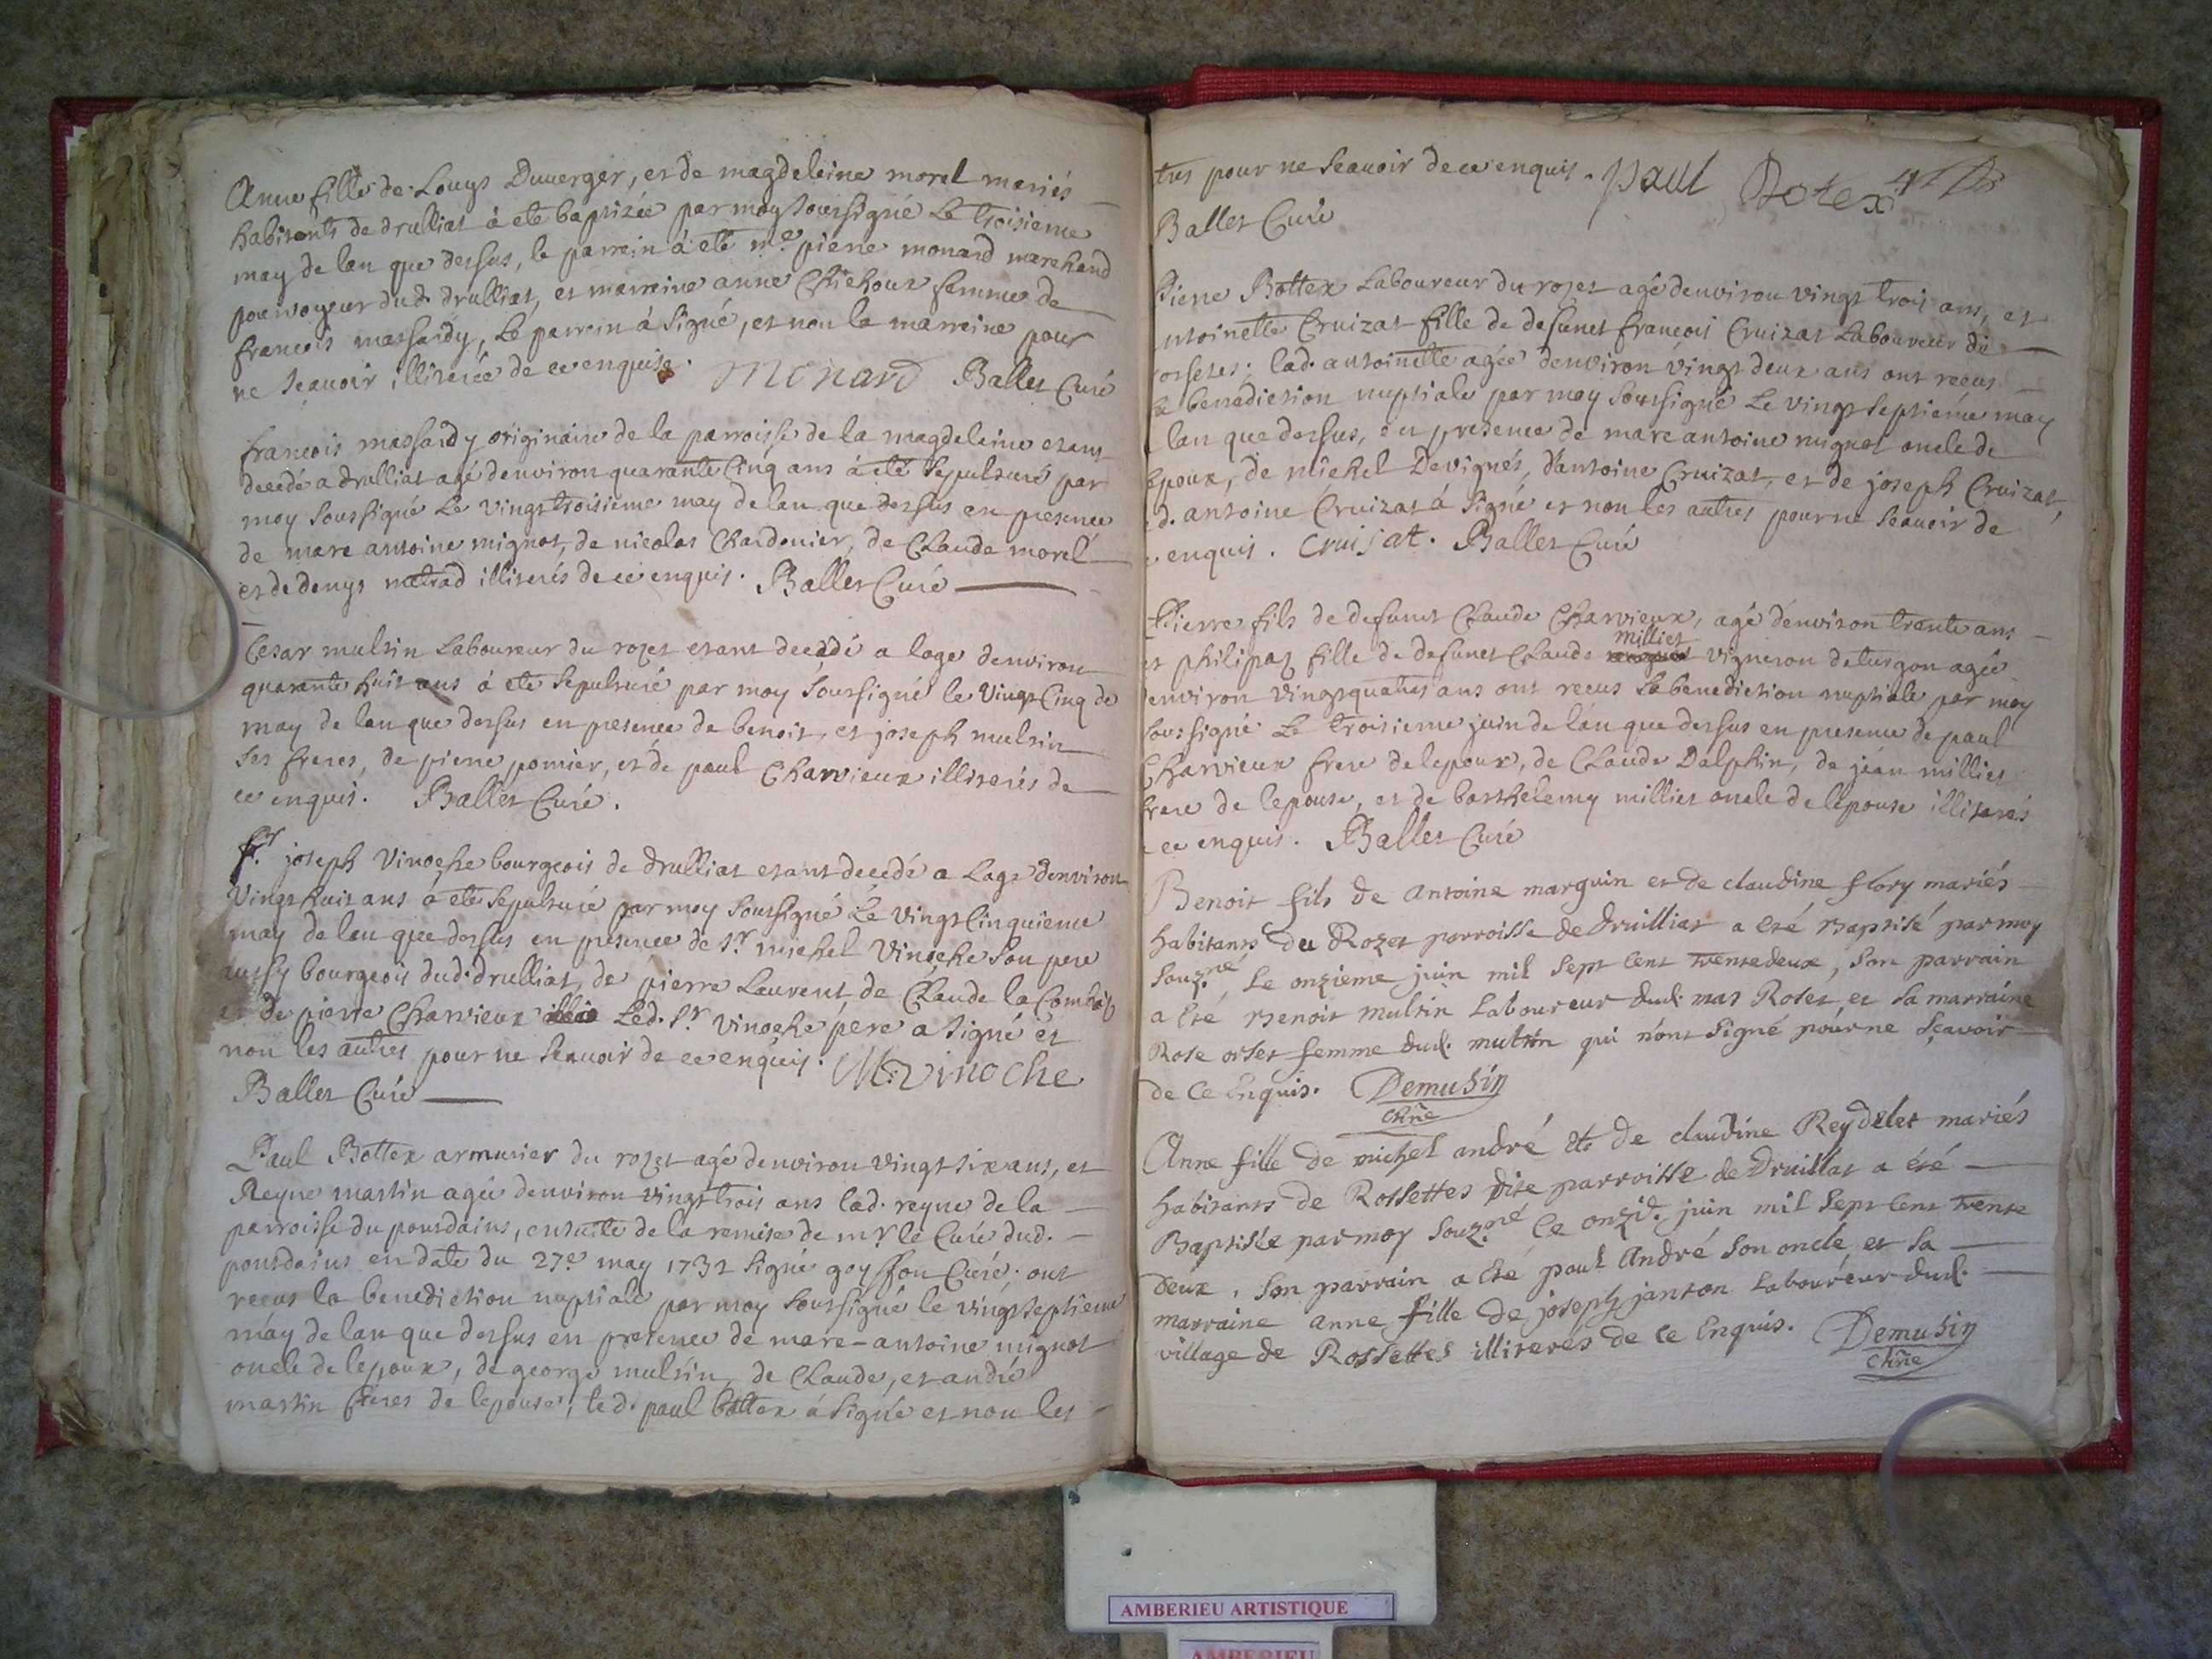 Anne fille de Louys Duverger, et de magdeleine morel mariés
habitants de drulliat à eté baptizée par moy soussigné Le troisieme
may de lan que dessus, le parrein à eté me pierre monard marchand
pourvoyeur dud. drulliat, et marreine anne Chichoux femme de
francois massardy, Le parrein à signé, et non la marreine pour
ne scauoir illiterée de ce enquise. Monard Ballet Curé
francois massardy originaire de la parroisse de la magdeleine etant
decedé a drulliat agé denviron quarante Cinq ans à eté sepulturé par
moy soussigné Le vingt troisieme may de lan que dessus en presence
de marc antoine mignot, de nicolas Chardonier, de Claude morel
et de denys metrad illiterés de ce enquis. Ballet Curé
Cesar multin Laboureur du rozet etant decedé a lage denviron
quarante huit ans à eté sepulturé par moy soussigné le vingt Cinq de
may de lan que dessus en presence de benoit, et joseph multin
ses freres, de pierre pomier, et de paul Charvieux illiterés de
ce enquis. Ballet Curé.
Sr joseph Vinoche bourgeois de drulliat etant decedé a Lage denviron
Vingt huit ans à eté sepulturé par moy soussigné Le vingt Cinquieme
may de lan que dessus en presence de Sr michel Vinoche son pere
aussy bourgeois dud. drulliat, de pierre Laurent, de Claude la Combe
et de pierre Charvieux Led. Sr vinoche pere a signé et
non les autres pour ne scauoir de ce enquis. M. Vinoche
Ballet Curé
Paul Bottex armurier du rozet agé denviron vingt six ans, et
Reyne martin agée denviron vingt trois ans lad. reyne de la
parroisse du pontdains, ensuite de la remise de mr le Curé dud.
pontdains en date du 27e may 1732 signé goyffon Curé; ont
receus la benediction nuptiale par moy soussigné le vingt septieme
may de lan que dessus en presence de marc-antoine mignot
oncle de lepoux, de george multin, de Claude, et andré
martin freres de lepouse; led. paul bottex à signé et non les
tres pour ne scauoir de ce enquis. paul Botex
Ballet Curé
Pierre Bottex Laboureur du rozet agé denviron vingt trois ans, et
ntoinette Cruizat fille de defunct francois Cruizat Laboureur de
ossetes; lad. antoinette agée denviron vingt deux ans ont receus
la benediction nuptiale par moy soussigné Le vingt septieme may
lan que dessus, en presence de marc antoine mignot oncle de
Epoux, de michel Devignés, dantoine Cruizat, et de joseph Cruizat,
d. antoine Cruizat à signé et non les autres pour ne scauoir de
enquis. cruijat. Ballet Curé
Pierre fils de defunct Claude Charvieux, agé denviron trente ans
milliet
et philipaz fille de defunct Claude vigneron de turgon agée
denviron vingt quatres ans ont receus la benediction nuptiale par moy
soussigné Le troisieme juin de lan que dessus en presence de paul
Charvieux frere de lepoux, de Claude Dalphin, de jean milliet
frere de lepouse, et de barthelemy milliet oncle de lepouse illiterés
ce enquis. Ballet Curé
Benoit fils de antoine marguin et de claudine flory mariés
habitants du Rozet parroisse de druilliat a eté Baptisé par moy
souz.né Le onzieme juin mil sept cent trente deux, son parrain
a eté Benoit multin Laboureur dud. mas Rozet, et sa marraine
Rose orset femme dud. multin qui n'ont signé pour ne sçavoir
de ce Enquis. Demusin
chne
Anne fille de michel andré et de claudine Reydelet mariés
habitants de Rossettes dite parroisse de Druillat a eté
Baptisée par moy souz.né Le onzie. juin mil sept cent trente
deux, son parrain a eté paul André son oncle, et sa
marraine anne fille de joseph janton Laboureur dud.
village de Rossettes illiterés de ce Enquis. Demusin
chne
AMBERIEU ARTISTIQUE
AMBERIEU